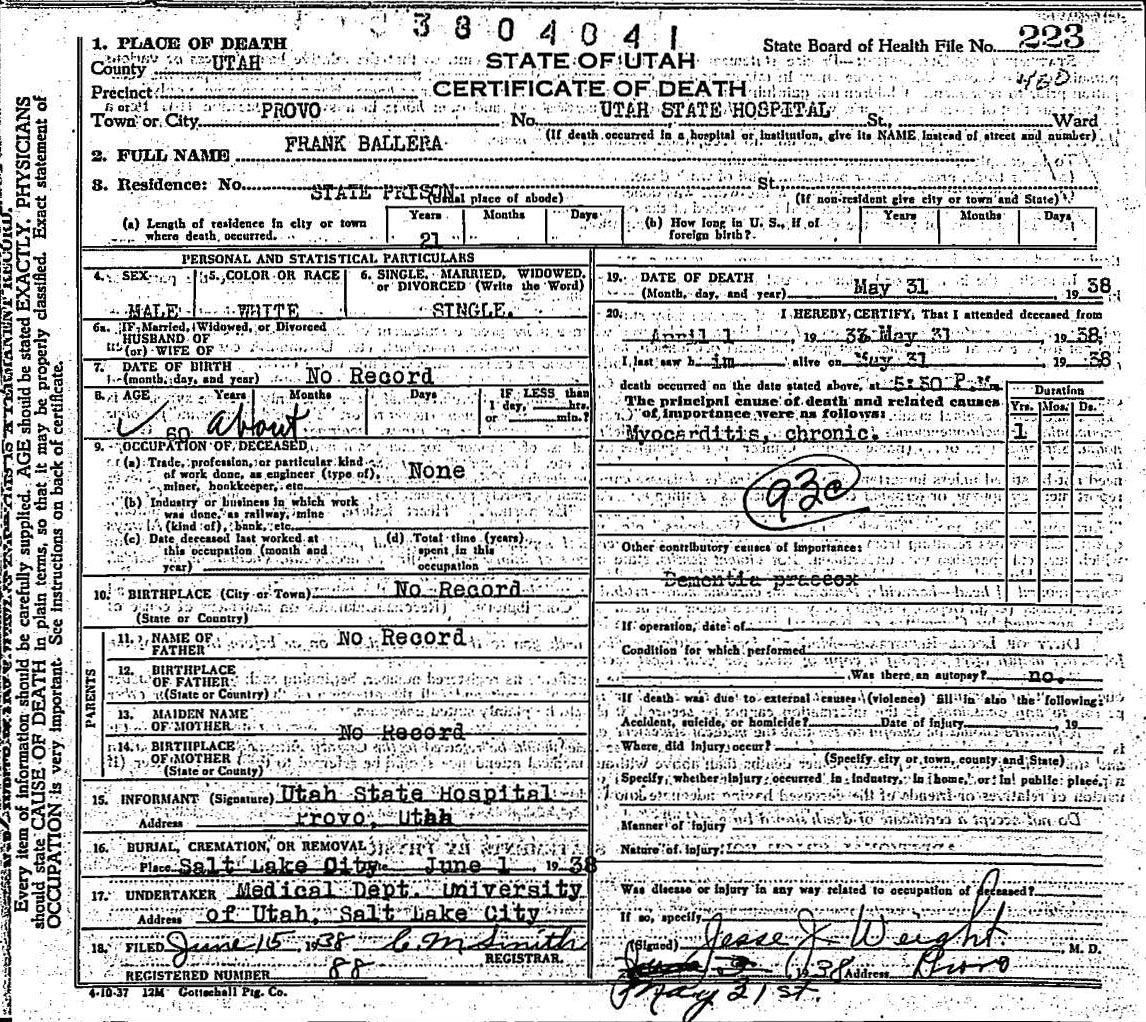 3804041
State Board of Health File No. 223
460
1. PLACE OF DEATH
STATE OF UTAH
County UTAH
CERTIFICATE OF DEATH
Precinct
or
Town or City PROVO No. UTAH STATE HOSPITAL St., Ward
(If death occurred in a hospital or institution, give its NAME instead of street and number)
2. FULL NAME FRANK BALLERA
3. Residence: No. STATE PRISON St.
(Usual place of abode) (If non-resident give city or town and State)
(a) Length of residence in city or town where death occurred. Years 21 Months Days
(b) How long in U. S., if of foreign birth? Years Months Days
PERSONAL AND STATISTICAL PARTICULARS
4. SEX MALE
5. COLOR OR RACE WHITE
6. SINGLE, MARRIED, WIDOWED, or DIVORCED (Write the Word) SINGLE.
6a. If Married, Widowed, or Divorced
HUSBAND OF
(or) WIFE OF
7. DATE OF BIRTH
(month, day, and year) No Record
8. AGE Years Months Days IF LESS than 1 day, hrs. or min.?
60 about
9. OCCUPATION OF DECEASED
(a) Trade, profession, or particular kind of work done, as engineer (type of), miner, bookkeeper, etc. None
(b) Industry or business in which work was done, as railway, mine (kind of), bank, etc.
(c) Date deceased last worked at this occupation (month and year)
(d) Total time (years) spent in this occupation
10. BIRTHPLACE (City or Town) No Record
(State or Country)
PARENTS
11. NAME OF FATHER No Record
12. BIRTHPLACE OF FATHER
(State or Country)
13. MAIDEN NAME OF MOTHER No Record
14. BIRTHPLACE OF MOTHER
(State or County)
15. INFORMANT (Signature) Utah State Hospital
Address Provo, Utah
16. BURIAL, CREMATION, OR REMOVAL
Place Salt Lake City June 1 1938
17. UNDERTAKER Medical Dept. University
Address of Utah, Salt Lake City
18. FILED June 15 1938 C M Smith
REGISTRAR.
REGISTERED NUMBER 88
4-10-37 12M Gottschall Ptg. Co.
19. DATE OF DEATH
(Month, day, and year) May 31 1938
20. I HEREBY CERTIFY, That I attended deceased from
April 1, 1937 May 31, 1938
I last saw him alive on May 31 1938
death occurred on the date stated above, at 5:30 P.M.
The principal cause of death and related causes of importance were as follows:
Duration
Yrs. Mos. Ds.
Myocarditis, chronic. 1
93c
Other contributory causes of importance:
Dementia praecox
If operation, date of
Condition for which performed
Was there an autopsy? no.
If death was due to external causes (violence) fill in also the following:
Accident, suicide, or homicide? Date of injury 19
Where did injury occur?
(Specify city or town, county and State)
Specify whether injury occurred in industry, in home, or in public place.
Manner of injury
Nature of injury
Was disease or injury in any way related to occupation of deceased?
If so, specify
(Signed) Jesse J. Weight M. D.
1938 Address Provo
May 31st.
Every item of information should be carefully supplied. AGE should be stated EXACTLY. PHYSICIANS
should state CAUSE OF DEATH in plain terms, so that it may be properly classified. Exact statement of
OCCUPATION is very important. See instructions on back of certificate.